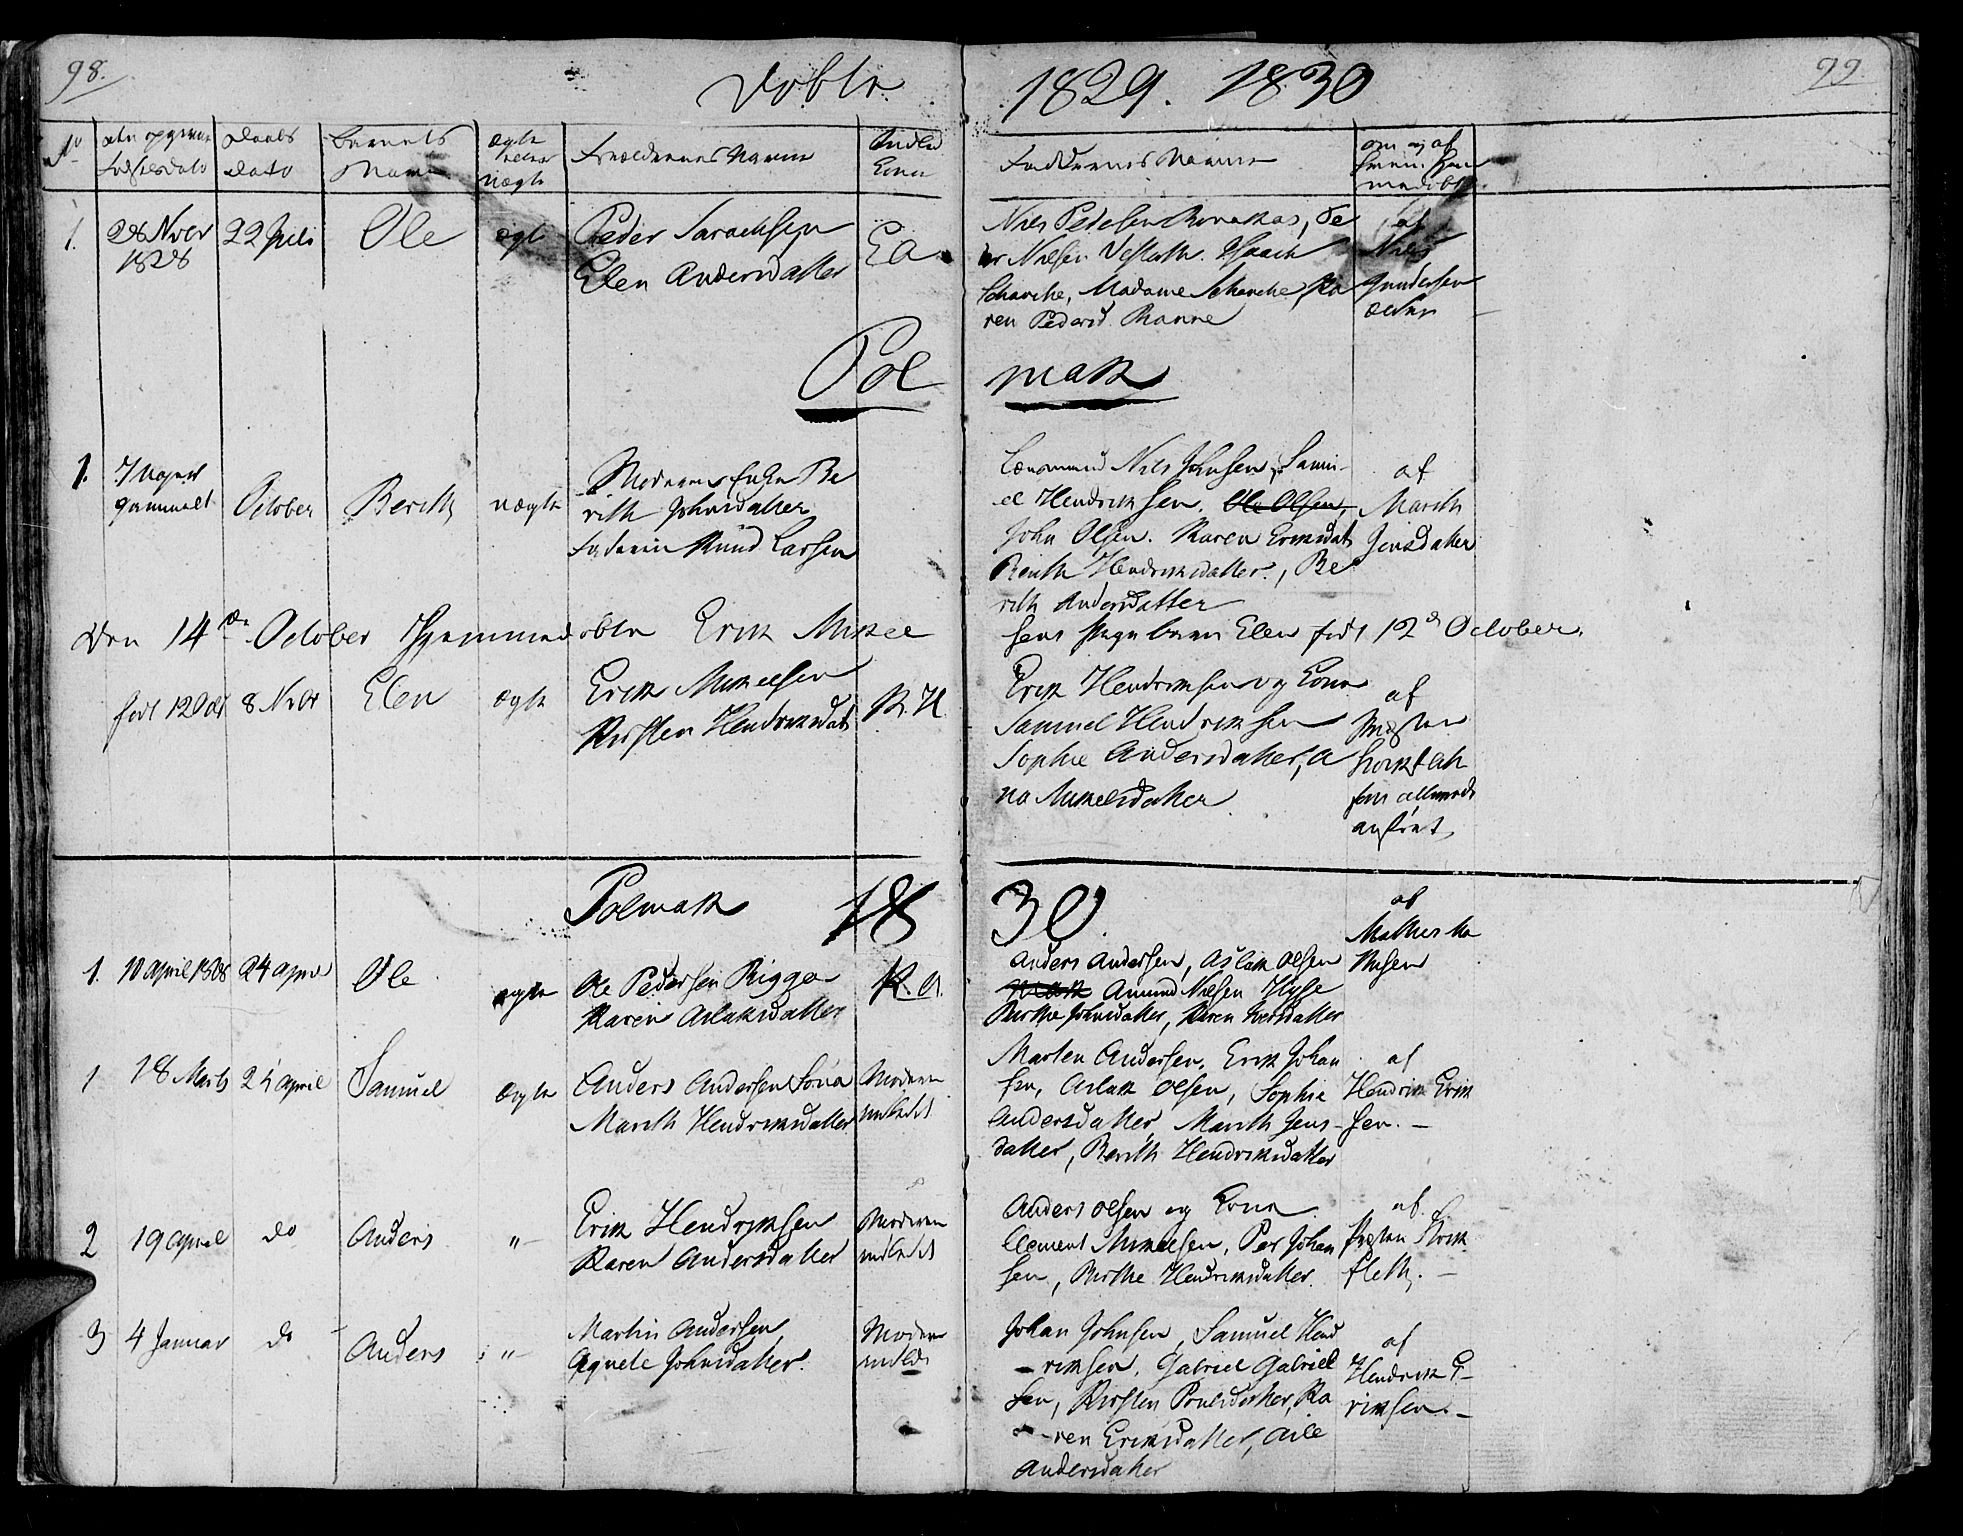 98.
Døbte
1829. 1830
99.
No
Daabs
Dato
Barnets
Navn
ægte
eller
uægte
Forældrenes Navne
Indled
Kone
Faddernes Navne
om og af
hvem hjem
medøbt
1.
28 Nvbr
1828
22 Juli
Ole
ægte
Peder Sarachsen
Elen Andersdatter
E A.
Niels Pedersen
er Nielsen
Schanche, Madame Schanche, Ka
ren Pedersd. Banne
af
Niels
Gundersen
Pol
mak
1.
7 Uger
gammelt
October
Berith
uægte
Moderen Enke Be
rith Johnsdatter
Faderen Knud Larsen
Lænsmand Niels Johnsen, Samu-
el Hendriksen, Ole Olsen,
John Olsen. Karen Eriksdat
Berith Hendriksdatter, Be
rith Andersdatter
af
Marith
Jensdatter
Den 14de October Hjemmedøbte Erik Mikel
sens Pigebarn Elen født 12 d October.
født 12 Octr
8 Nvbr
Elen
ægte
Erik Mikelsen
Kirsten Hendriksdat
K. H
Erik Hendriksen og Kone
Samuel Hendriksen
Sophie Andersdatter, A
na Mikelsdatter
af
Præsten
Stockfleth
som allerede
anført
Polmak 18
30.
1.
10 April 1828
24 April
Ole
ægte
Ole Pedersen Rigga
Karen Aslaksdatter
K. A.
Anders Andersen, Aslak Olsen
Amund Nielsen
Birthe Johnsdatter, Karen Iversdatter
af
Mathes Ha
nsen
1
18 Marts
25 April
Samuel
ægte
Anders Andersen
Marith Hendriksdatter
Moderen
indledet
Morten Andersen, Erik Johan
sen, Aslak Olsen, Sophie
Andersdatter, Marith Jens-
datter, Berith Hendriksdatter
af
Hendrik Erik
sen. -
2
19 April
do
Anders
"
Erik Hendriksen
Karen Andersdatter
Moderen
indledet
Anders Olsen og Kone
Clement Mikelsen, Per Johan
sen, Birthe Hendriksdatter.
af
Præsten Stock
fleth. -
3
4 Januar
do
Anders
"
Martin Andersen
Agnete Johnsdatter.
Moderen
indled
Johan Johnsen, Samuel Hend
riksen, Gabriel Gabriel
sen, Kirsten Poulsdatter, Ka
ren Eriksdatter, Aile
Andersdatter
af
Hendrik E-
riksen. -